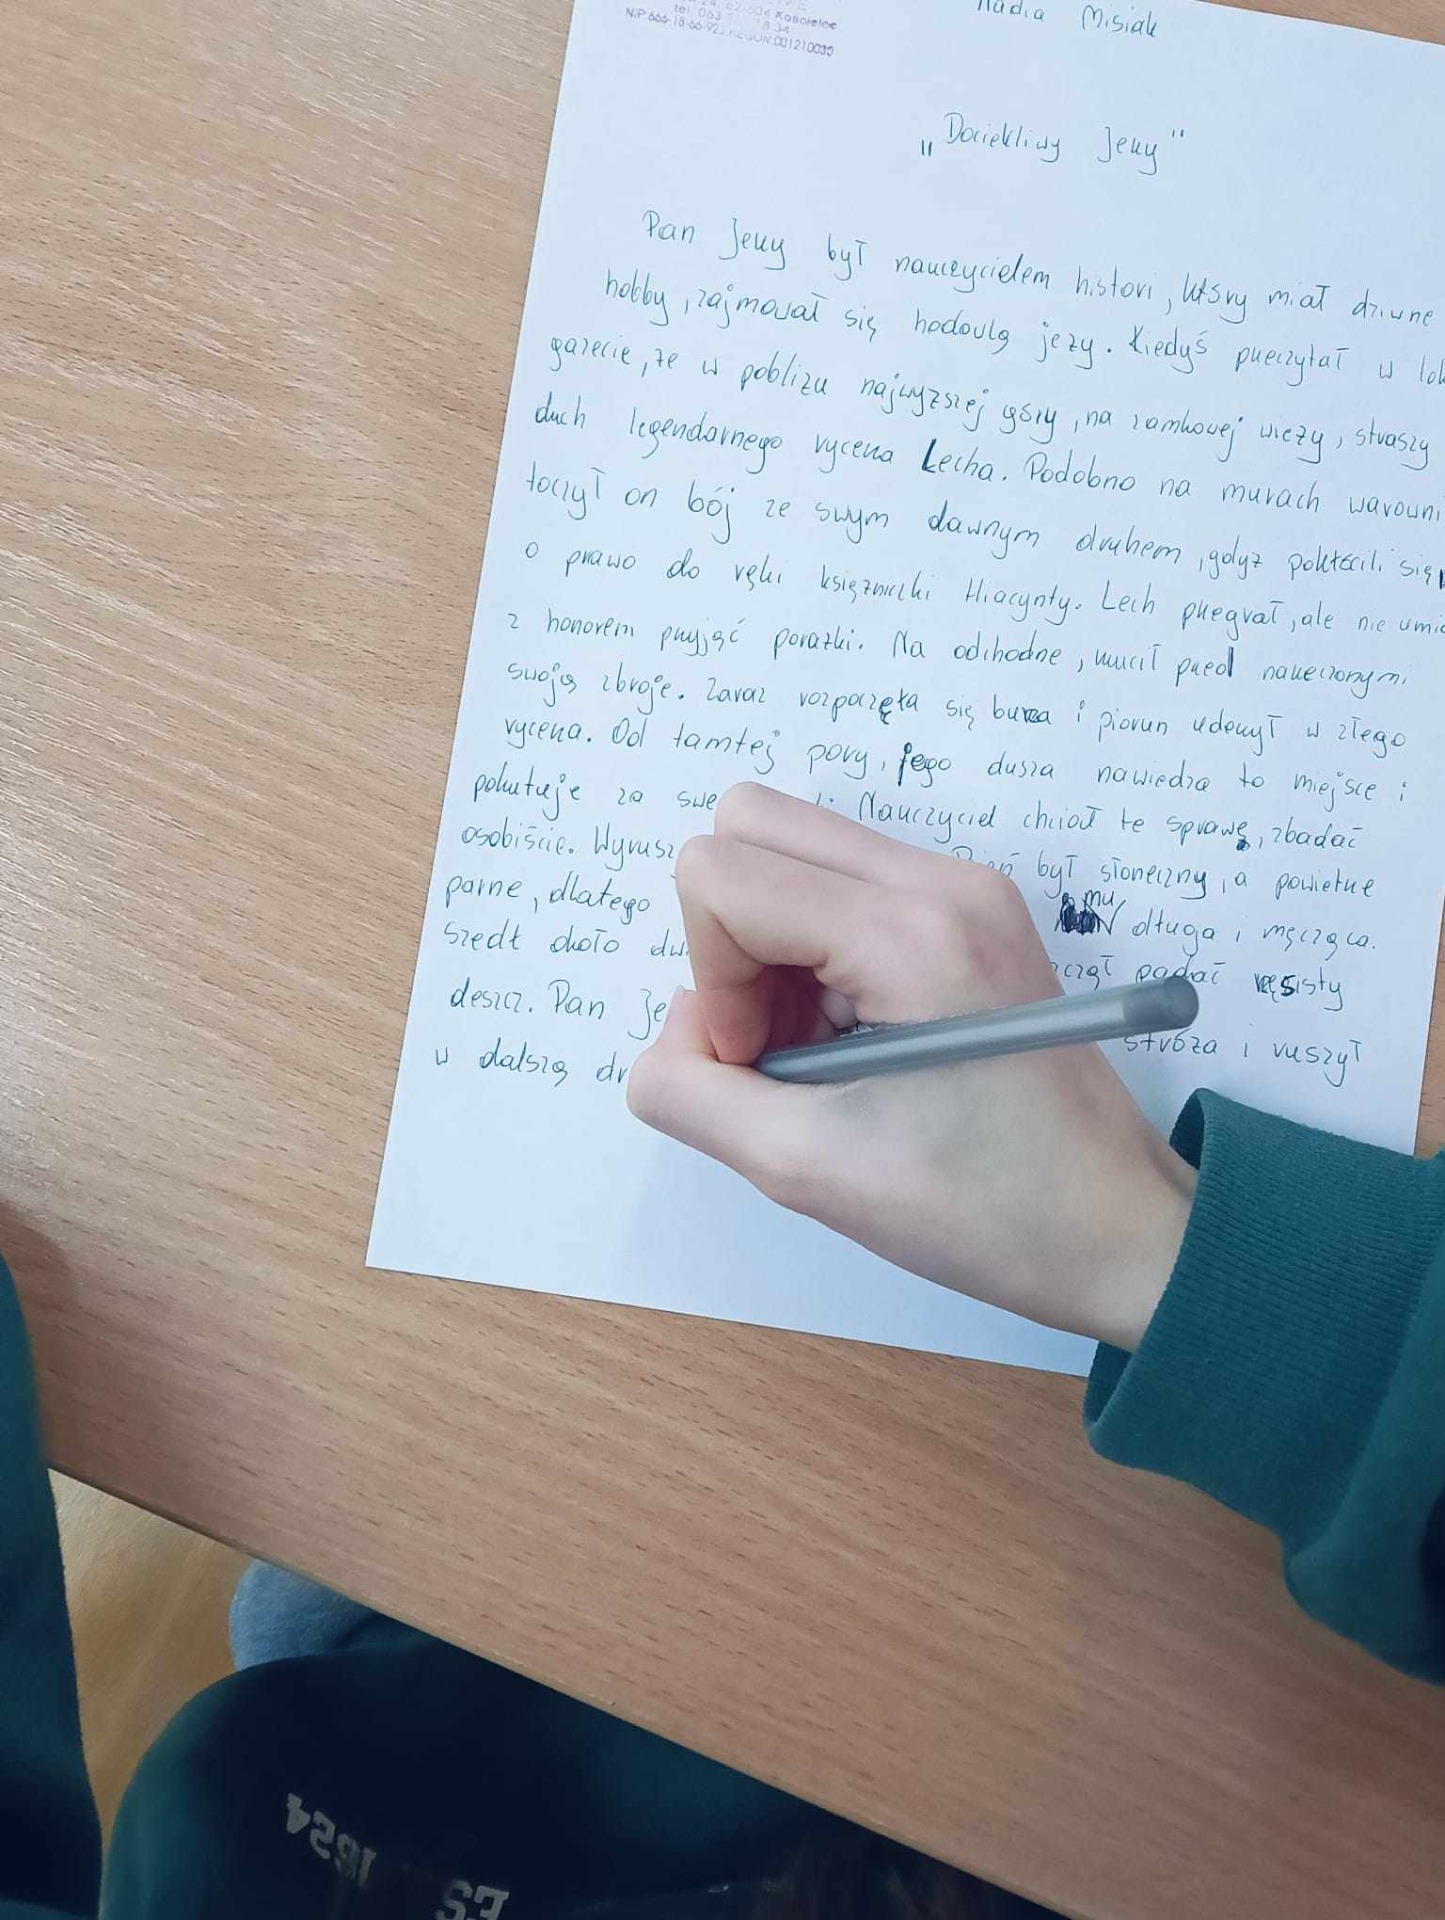 24, 62-604 Kościelec
tel. 063
NIP 666-18-66-92 REGON:001210033
Nadia Misiak
„Dociekliwy Jerzy"
Pan Jerzy był nauczycielem histori, który miał dziwne
hobby, zajmował się hodowlą jeży. Kiedyś przeczytał w lok
gazecie, że w pobliżu najwyższej góry, na zamkowej wieży, straszy
duch legendarnego rycerza Lecha. Podobno na murach warowni
toczył on bój ze swym dawnym druhem, gdyż pokłócili się
o prawo do ręki księżniczki Hiacynty. Lech przegrał, ale nie umia
z honorem przyjąć porażki. Na odchodne, rzucił przed naszeczonymi
swoją zbroje. Zaraz rozpoczęła się burza i piorun uderzył w złego
rycerza. Od tamtej pory, jego dusza nawiedza to miejsce i
pokutuje za swe Nauczyciel chciał te sprawę, zbadać
osobiście. Wyrusz był słoneczny, a powietrze
parne, dlatego mu długa i męcząca.
szedł około dw padać rzęsisty
deszcz. Pan Je stróża i ruszył
w dalszą dr
1954